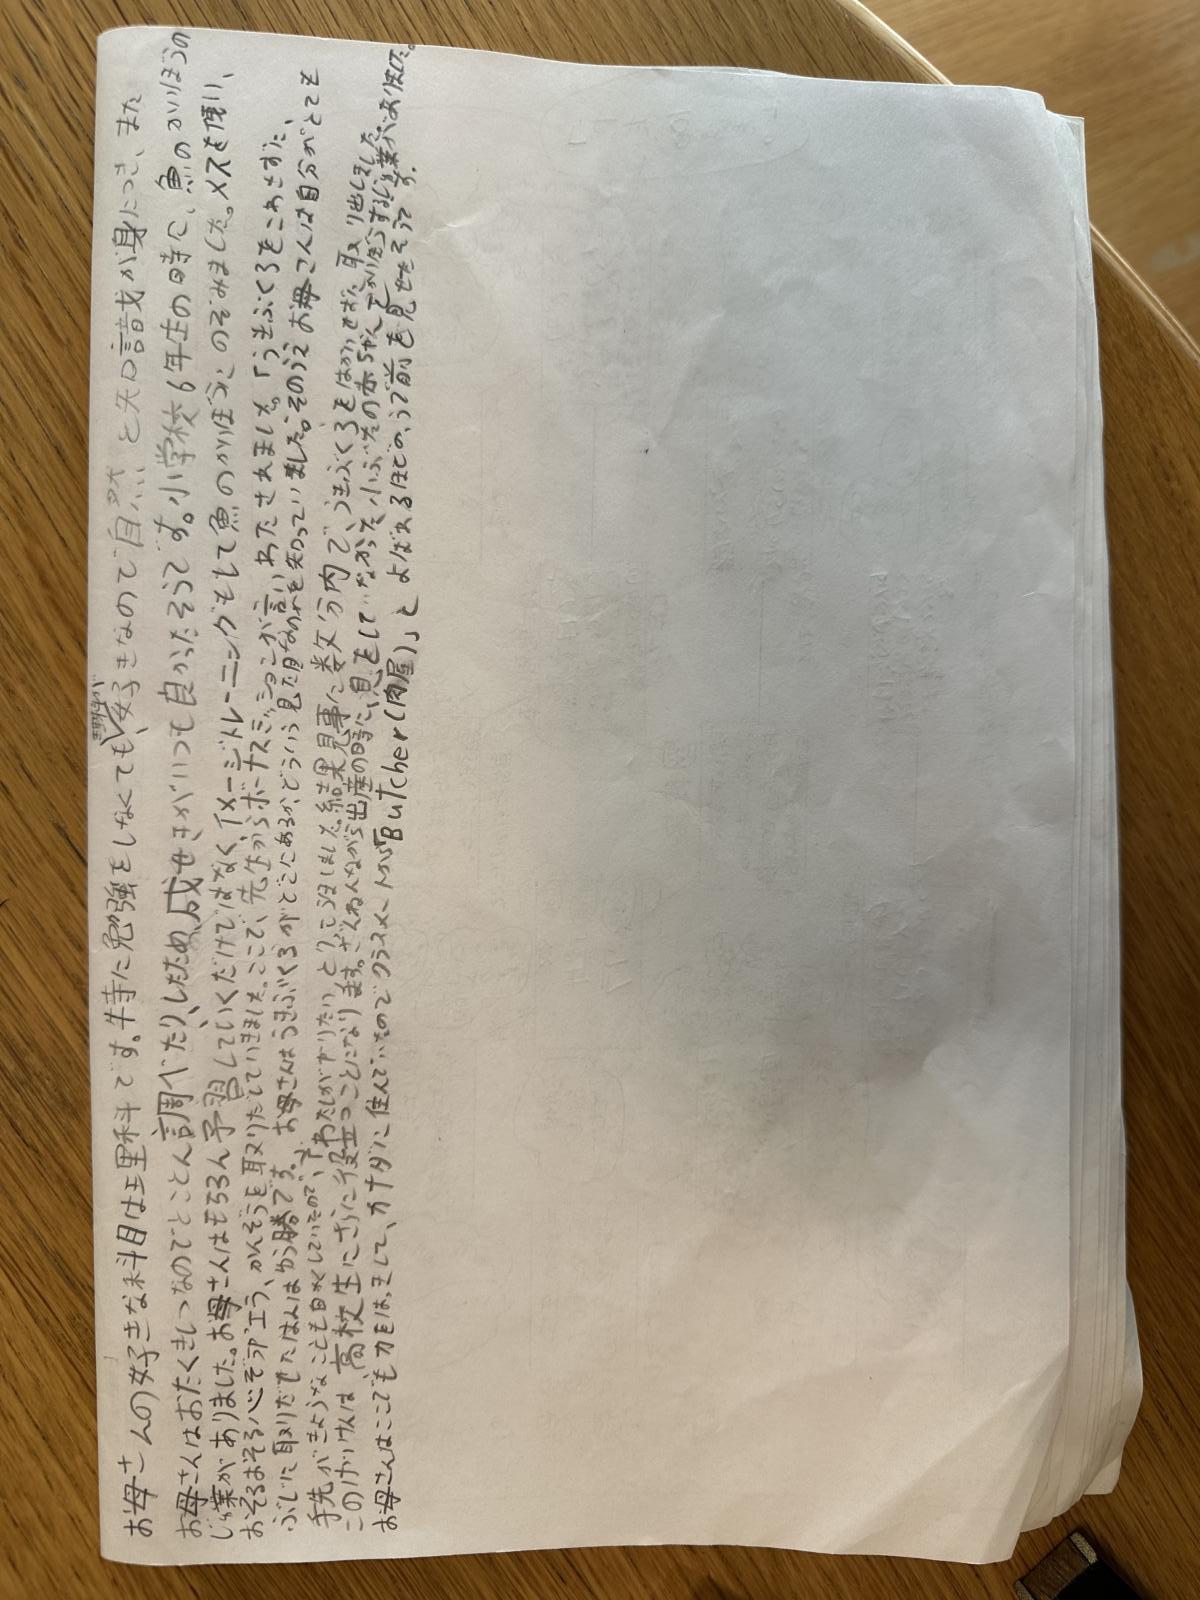 お母さんの好きな科目は理科です。特に勉強をしなくても、理科が好きなので自然と知識が身につき、また
お母さんはおたくきしつなのでとことん調べたり、したため、成せきがいつも良かったそうです。小学校6年生の時に、魚のかいぼうの
じゅ業がありました。お母さんはもちろん予習していくだけではなく、イメージトレーニングもして魚のかいぼうにのぞみました。メスを使い、
おそるおそる心ぞうやエラ、かんぞうを取りだしていきました。ここで、先生からボーナスミッションが言いわたされました。「うきぶくろをこわさずに、
ぶじに取りだせたはんはゆう勝です。」お母さんはうきぶくろがどこにあるか、どういう見た目なのかを知っていました。そのうえお母さんは自分がとても
手先がきようなことも自かくしていたので、「わたしがやりたい」と せんげんしました。結果見事に数分内で、うきぶくろをはかいせずに取り出しました。
このけいけんは、高校生にさらに役立つことになります。ざんねんながら出産の時に、息をしていなかった小ぶたの赤ちゃんをかいぼうするじゅ業がありました。
お母さんはここでも力をはっきして、カナダに住んでいたのでクラスメートから「Butcher(肉屋)」と よばれるほどの、うで前を見せたそうです。